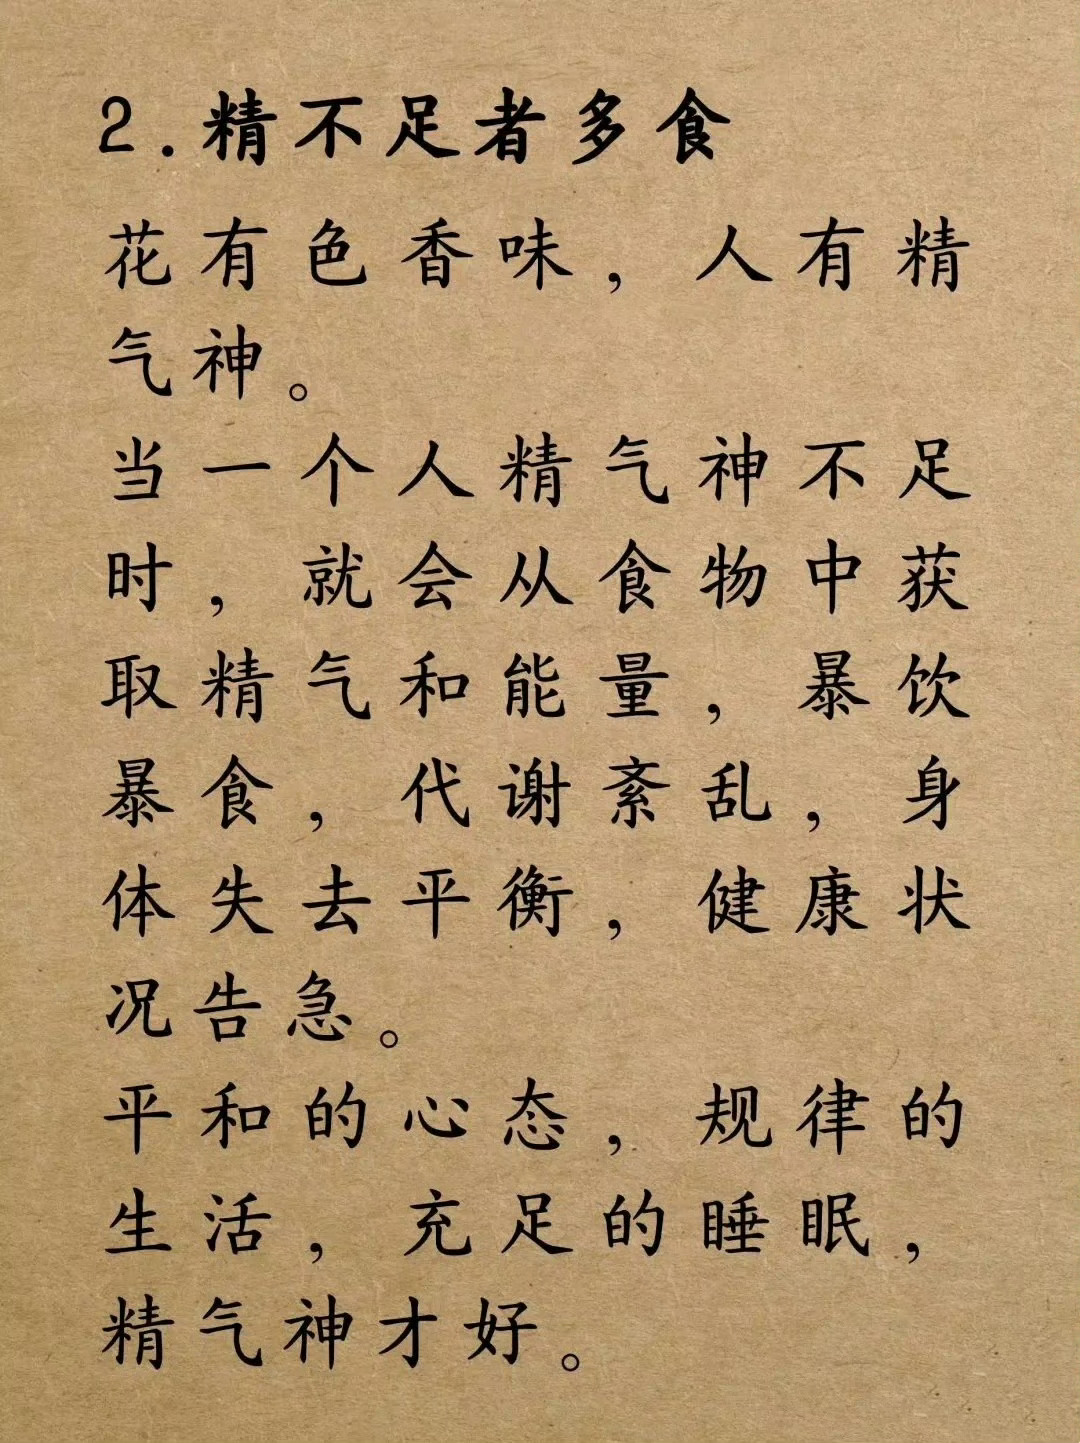 2.精不足者多食
花有色香味，人有精
气神。
当一个人精气神不足
时，就会从食物中获
取精气和能量，暴饮
暴食，代谢紊乱，身
体失去平衡，健康状
况告急。
平和的心态，规律的
生活，充足的睡眠，
精气神才好。